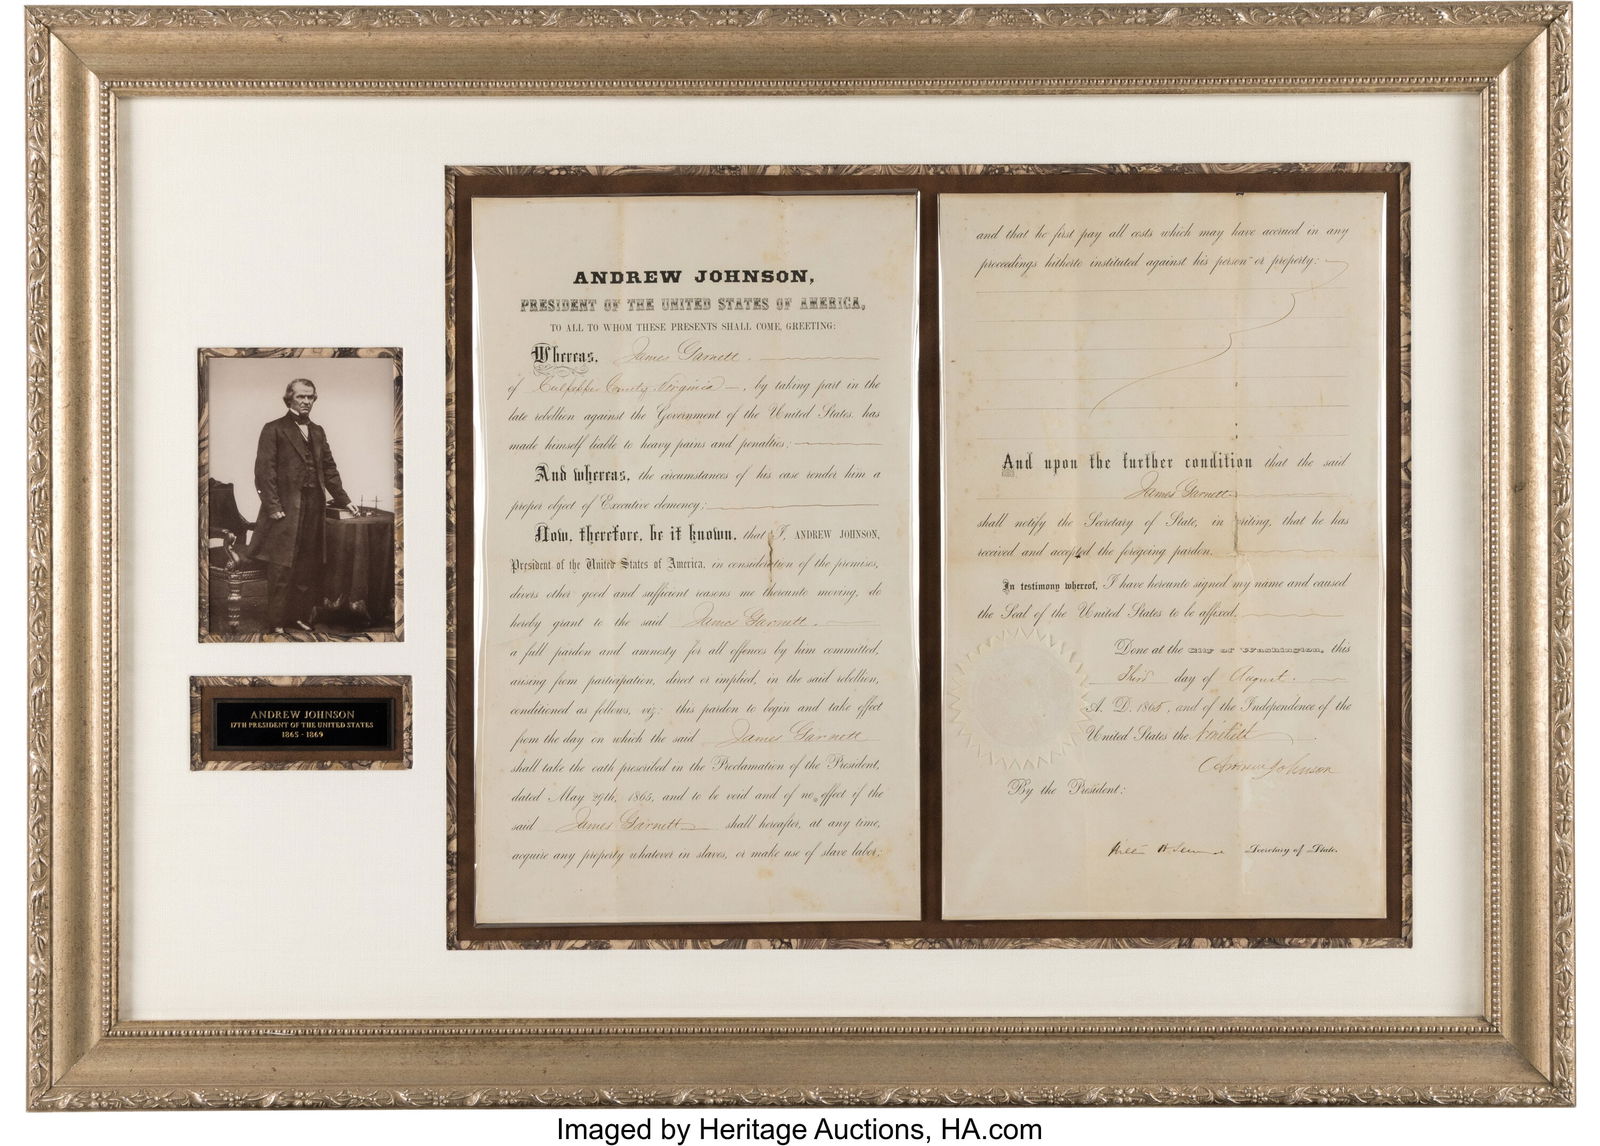 ANDREW JOHNSON,
PRESIDENT OF THE UNITED STATES OF AMERICA,
TO ALL TO WHOM THESE PRESENTS SHALL COME, GREETING:
Whereas, James Garnett
of Culpepper County, Virginia, by taking part in the
late rebellion against the Government of the United States, has
made himself liable to heavy pains and penalties;
And whereas, the circumstances of his case render him a
proper object of Executive clemency;
Now, therefore, be it known, that I, ANDREW JOHNSON,
President of the United States of America, in consideration of the premises,
divers other good and sufficient reasons me thereunto moving, do
hereby grant to the said James Garnett.
a full pardon and amnesty for all offences by him committed,
arising from participation, direct or implied, in the said rebellion,
conditioned as follows, viz: this pardon to begin and take effect
from the day on which the said James Garnett
shall take the oath prescribed in the Proclamation of the President,
dated May 29th, 1865, and to be void and of no effect if the
said James Garnett shall hereafter, at any time,
acquire any property whatever in slaves, or make use of slave labor;
and that he first pay all costs which may have accrued in any
proceedings hitherto instituted against his person or property:
And upon the further condition that the said
James Garnett
shall notify the Secretary of State, in writing, that he has
received and accepted the foregoing pardon.
In testimony whereof, I have hereunto signed my name and caused
the Seal of the United States to be affixed.
Done at the City of Washington, this
Third day of August.
A. D. 1865, and of the Independence of the
United States the Ninetieth
Andrew Johnson
By the President:
Secretary of State.
ANDREW JOHNSON
17TH PRESIDENT OF THE UNITED STATES
1865 - 1869
Imaged by Heritage Auctions, HA.com